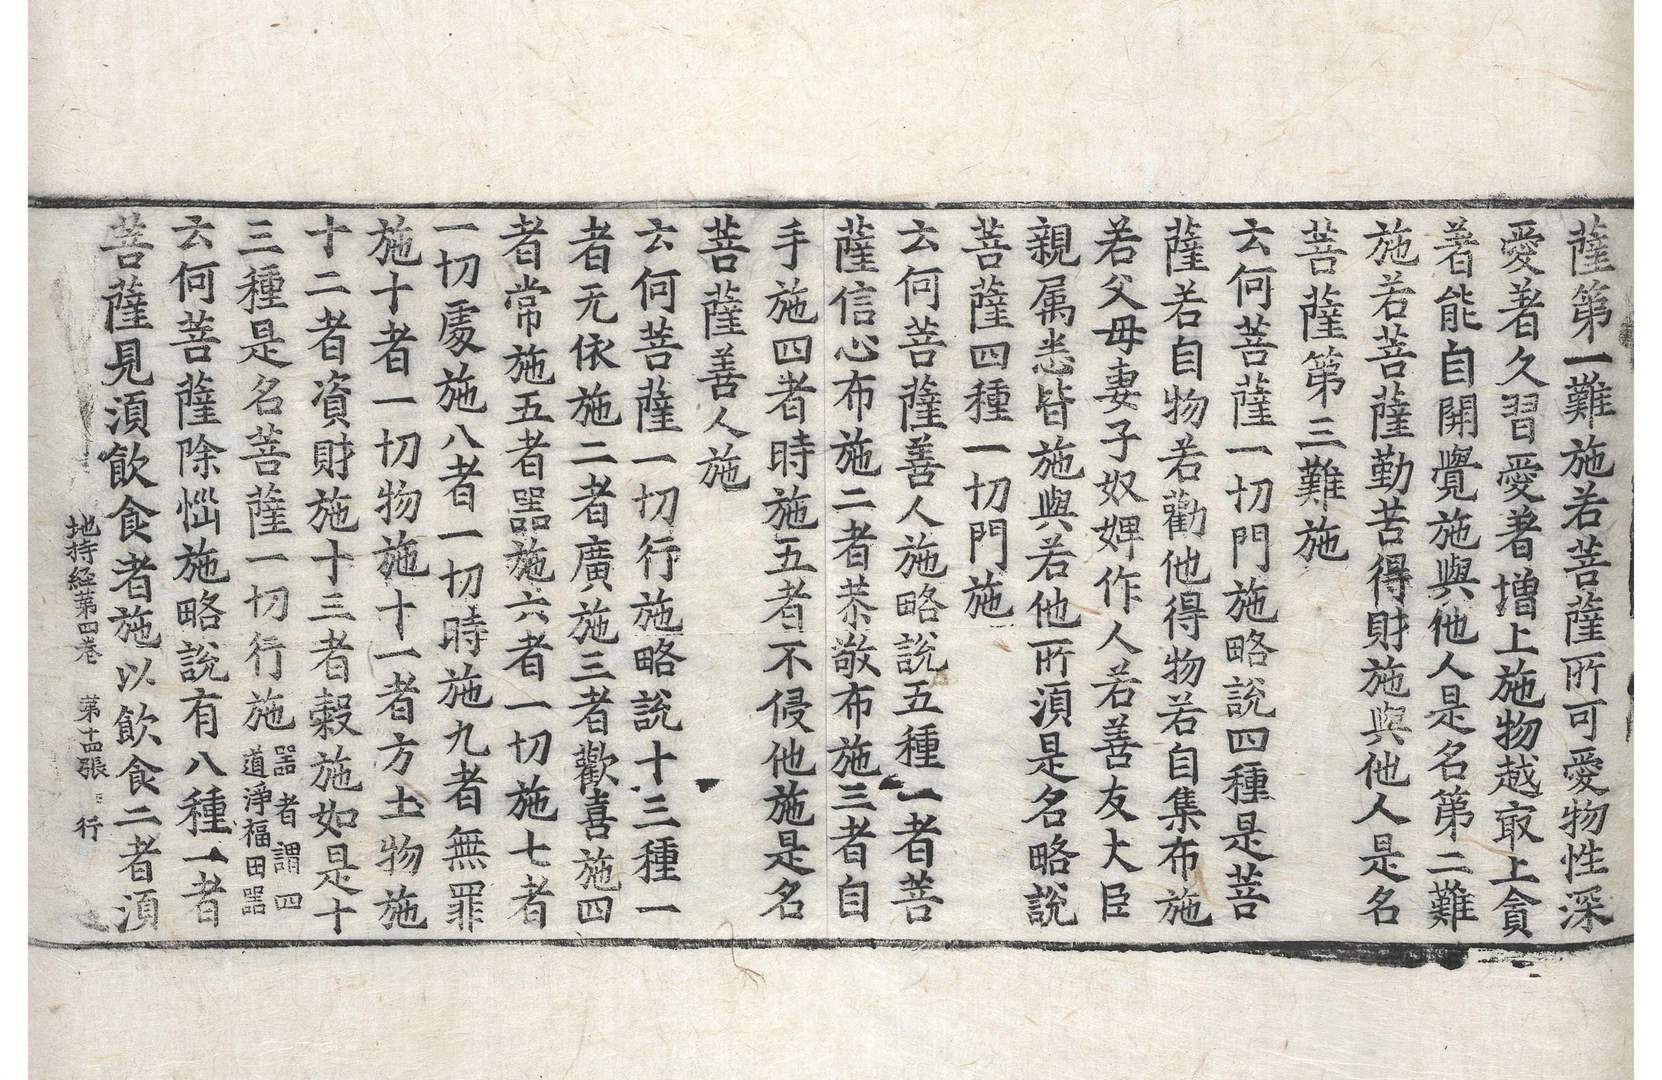 薩第一難施若菩薩所可愛物性深
愛著久習愛著增上施物越敢上貪
著能自開覺施與他人是名第二難
施若菩薩勤苦得財施與他人是名
菩薩第三難施
云何菩薩一切門施略說四種是菩
薩若自物若勸他得物若自集布施
若父母妻子奴婢作人若善友大臣
親属悉皆施與若他所湏是名略說
菩薩四種一切門施
云何菩薩善人施略說五種一者菩
薩信心布施二者恭敬布施三者自
手施四者時施五者不侵他施是名
菩薩善人施
云何菩薩一切行施略說十三種一
者无依施二者廣施三者歡喜施四
者常施五者器施六者一切施七者
一切處施八者一切時施九者無罪
施十者一切物施十一者方土物施
十二者資財施十三者穀施如是十
三種是名菩薩一切行施器者謂四道淨福田器
云何菩薩除惱施略說有八種一者
菩薩見湏飮食者施以飮食二者湏
地持經第四卷 第十四張 行